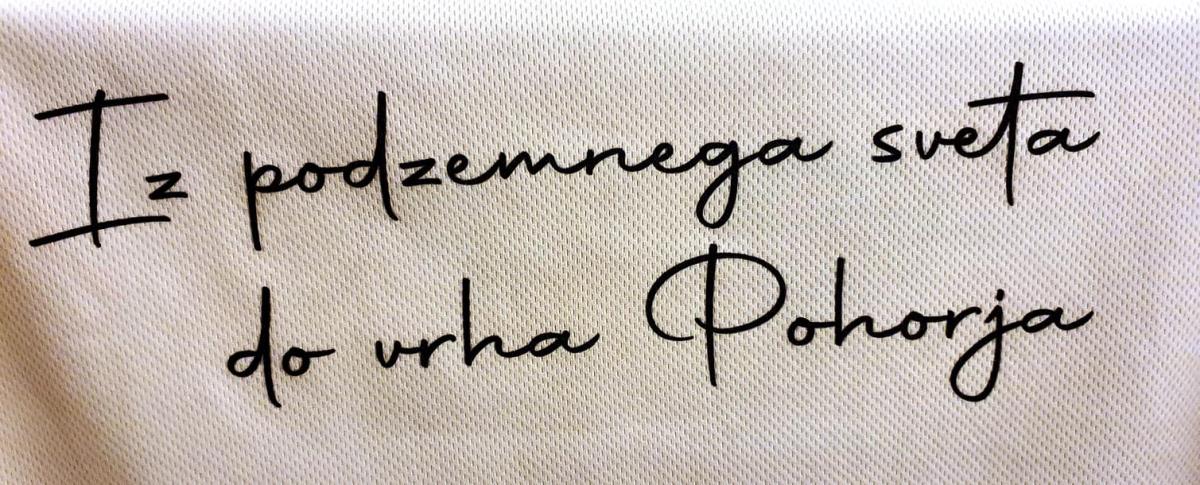 Iz podzemnega sveta
do vrha Pohorja